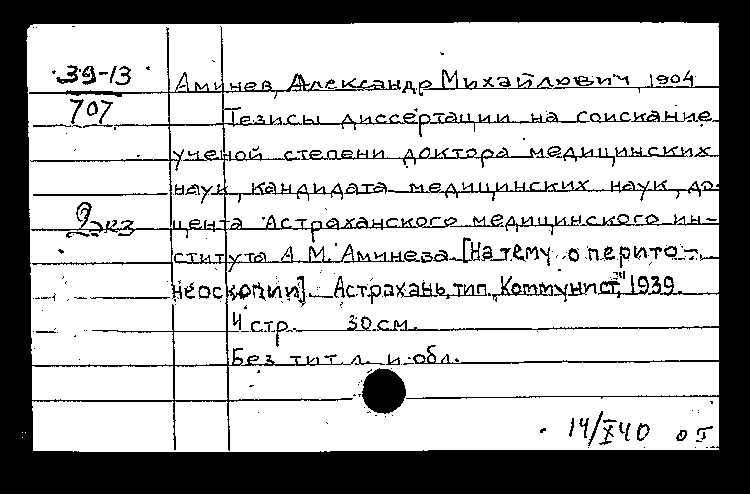 39-13
707
2 экз
Аминев, Александр Михайлович, 1904
Тезисы диссертации на соискание
ученой степени доктора медицинских
наук, кандидата медицинских наук, до-
цента Астраханского медицинского ин-
ститута А. М. Аминева. [На тему о перито-
неоскопии]. Астрахань, тип. „Коммунист", 1939.
4 стр. 30 см.
Без тит. л. и обл.
14/X 40